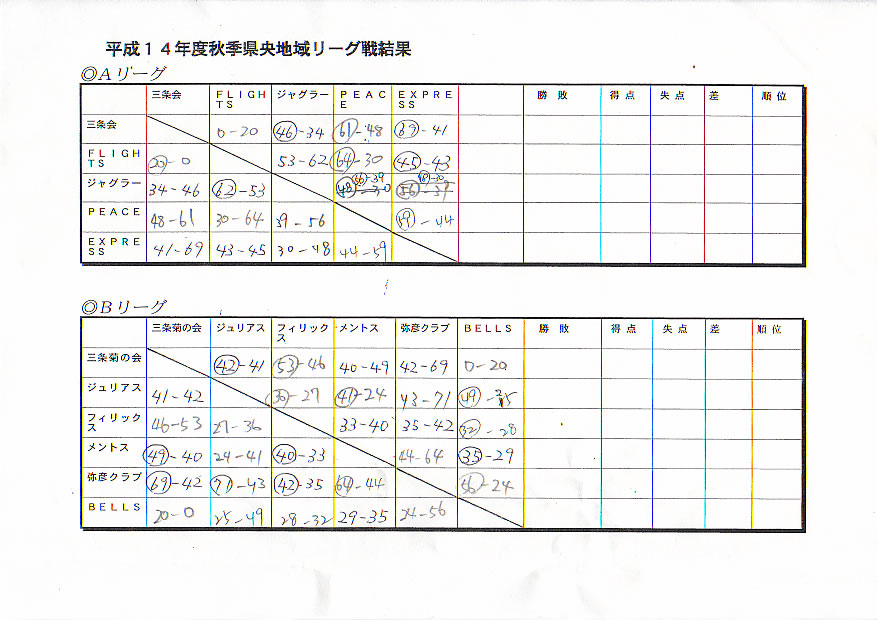 平成１４年度秋季県央地域リーグ戦結果
◎Aリーグ
三条会 FLIGHTS ジャグラー PEACE EXPRESS 勝敗 得点 失点 差 順位
三条会 0-20 46-34 61-48 69-41
FLIGHTS 20-0 53-62 64-30 45-43
ジャグラー 34-46 62-53 56-39 48-30 48-30
PEACE 48-61 30-64 39-56 59-44
EXPRESS 41-69 43-45 30-48 44-59
◎Bリーグ
三条菊の会 ジュリアス フィリックス メントス 弥彦クラブ BELLS 勝敗 得点 失点 差 順位
三条菊の会 42-41 53-46 40-49 42-69 0-20
ジュリアス 41-42 36-27 41-24 43-71 49-25
フィリックス 46-53 27-36 33-40 35-42 32-28
メントス 49-40 24-41 40-33 44-64 35-29
弥彦クラブ 69-42 71-43 42-35 64-44 56-24
BELLS 20-0 25-49 28-32 29-35 24-56